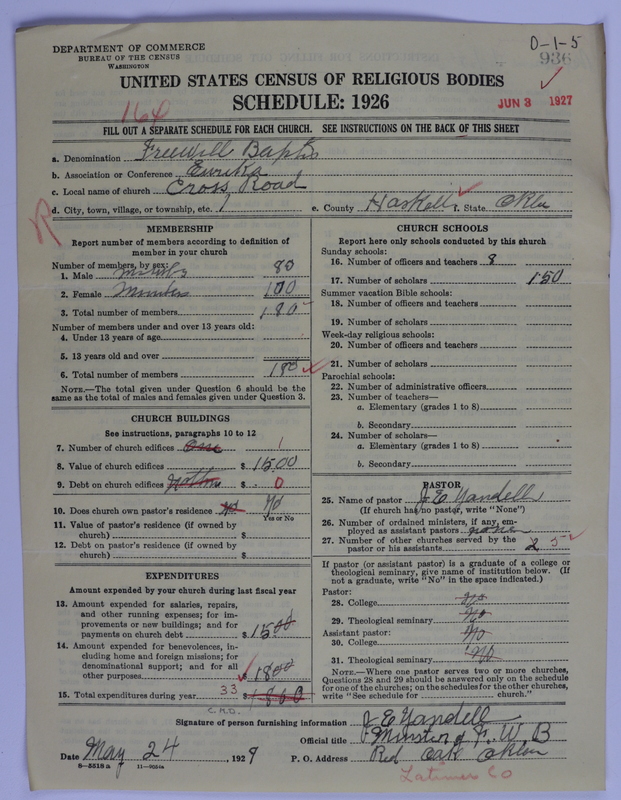 DEPARTMENT OF COMMERCE
BUREAU OF THE CENSUS
WASHINGTON
0-1-5
936
UNITED STATES CENSUS OF RELIGIOUS BODIES
SCHEDULE: 1926
JUN 3 1927
164
FILL OUT A SEPARATE SCHEDULE FOR EACH CHURCH. SEE INSTRUCTIONS ON THE BACK OF THIS SHEET
a. Denomination Freewill Baptis
b. Association or Conference Eurika
c. Local name of church Cross Road
d. City, town, village, or township, etc.
e. County Haskell f. State Okla
MEMBERSHIP
Report number of members according to definition of
member in your church
Number of members, by sex:
1. Male 80
2. Female 100
3. Total number of members 180
Number of members under and over 13 years old:
4. Under 13 years of age
5. 13 years old and over
6. Total number of members 180
NOTE.—The total given under Question 6 should be the
same as the total of males and females given under Question 3.
CHURCH BUILDINGS
See instructions, paragraphs 10 to 12
7. Number of church edifices one 1
8. Value of church edifices $ 1500
9. Debt on church edifices $ 0
10. Does church own pastor's residence No No
Yes or No
11. Value of pastor's residence (if owned by
church) $
12. Debt on pastor's residence (if owned by
church) $
EXPENDITURES
Amount expended by your church during last fiscal year
13. Amount expended for salaries, repairs,
and other running expenses; for im-
provements or new buildings; and for
payments on church debt $ 1500
14. Amount expended for benevolences, in-
cluding home and foreign missions; for
denominational support; and for all
other purposes 1800
15. Total expenditures during year 33 $ 1800
CHURCH SCHOOLS
Report here only schools conducted by this church
Sunday schools:
16. Number of officers and teachers 8
17. Number of scholars 150
Summer vacation Bible schools:
18. Number of officers and teachers
19. Number of scholars
Week-day religious schools:
20. Number of officers and teachers
21. Number of scholars
Parochial schools:
22. Number of administrative officers
23. Number of teachers—
a. Elementary (grades 1 to 8)
b. Secondary
24. Number of scholars—
a. Elementary (grades 1 to 8)
b. Secondary
PASTOR
25. Name of pastor J E Yandell
(If church has no pastor, write "None")
26. Number of ordained ministers, if any, em-
ployed as assistant pastors none
27. Number of other churches served by the
pastor or his assistants 2
If pastor (or assistant pastor) is a graduate of a college or
theological seminary, give name of institution below. (If
not a graduate, write "No" in the space indicated.)
Pastor:
28. College No
29. Theological seminary No
Assistant pastor:
30. College No
31. Theological seminary No
NOTE.—Where one pastor serves two or more churches,
Questions 28 and 29 should be answered only on the schedule
for one of the churches; on the schedules for the other churches,
write "See schedule for church."
Signature of person furnishing information J E Yandell
Official title Minster of F. W. B
Date May 24, 1929 P. O. Address Red Oak Oklea
8-5518 a 11-9554a
Latimer Co